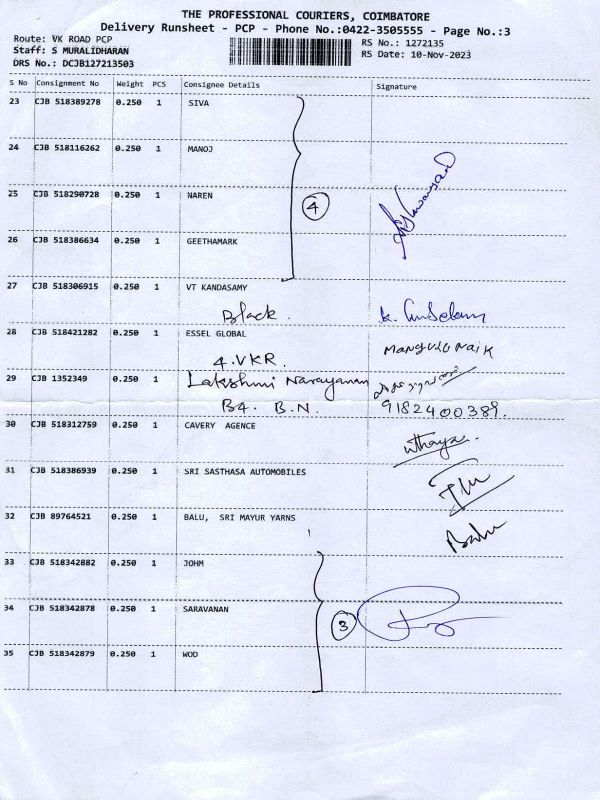 THE PROFESSIONAL COURIERS, COIMBATORE
Delivery Runsheet - PCP - Phone No.:0422-3505555 - Page No.:3
Route: VK ROAD PCP
RS No.: 1272135
Staff: S MURALIDHARAN
RS Date: 10-Nov-2023
DRS No.: DCJB127213503
S No Consignment No Weight PCS Consignee Details Signature
23 CJB 518389278 0.250 1 SIVA
24 CJB 518116262 0.250 1 MANOJ
25 CJB 518290728 0.250 1 NAREN
4
26 CJB 518386634 0.250 1 GEETHAMARK
27 CJB 518306915 0.250 1 VT KANDASAMY
Black.
28 CJB 518421282 0.250 1 ESSEL GLOBAL
4. VKR. NAIK
29 CJB 1352349 0.250 1 Lakshmi Narayanan
B4. B.N. 9182400389.
30 CJB 518312759 0.250 1 CAVERY AGENCE
uthaya.
31 CJB 518386939 0.250 1 SRI SASTHASA AUTOMOBILES
32 CJB 89764521 0.250 1 BALU, SRI MAYUR YARNS
Balu
33 CJB 518342882 0.250 1 JOHM
34 CJB 518342878 0.250 1 SARAVANAN
3
35 CJB 518342879 0.250 1 WOD